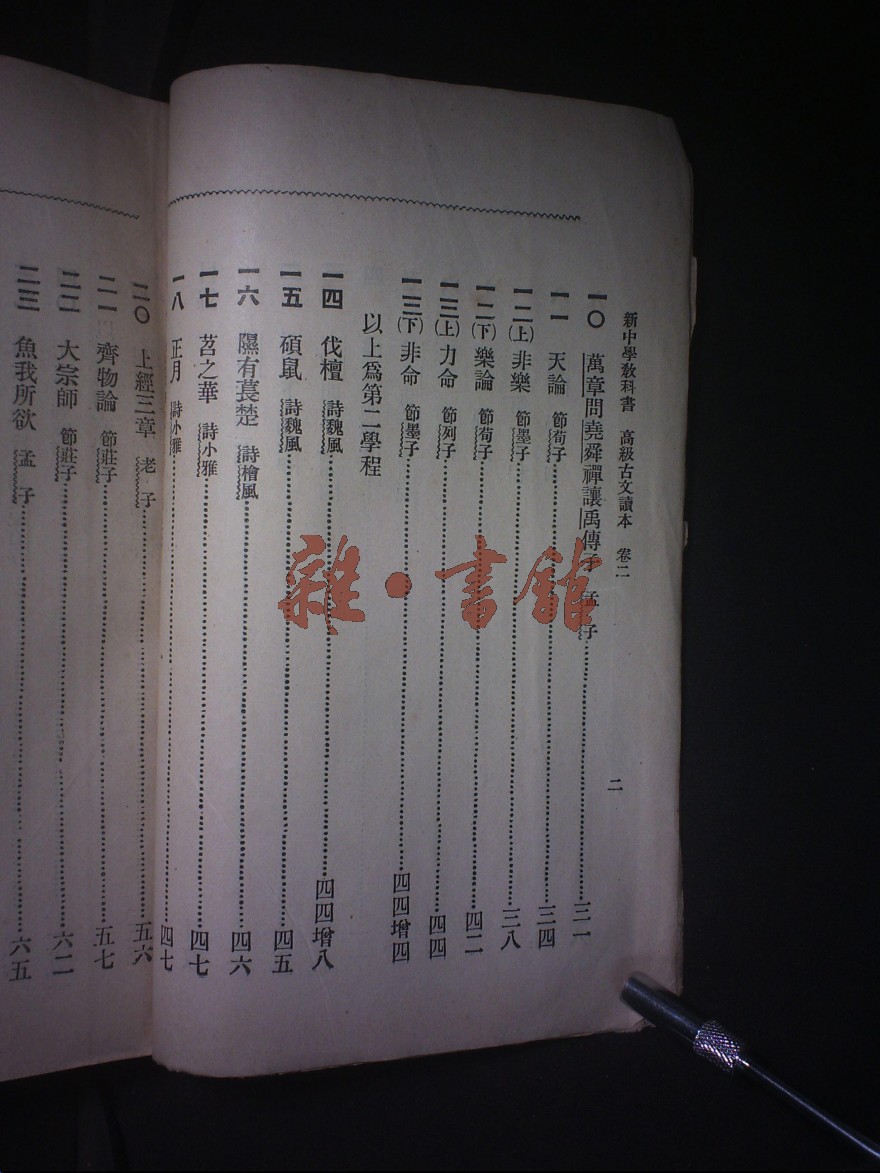 新中學教科書 高級古文讀本 卷二
二
一〇 萬章問堯舜禪讓禹傳子 孟子……三一
一一 天論 節荀子……三四
一二(上) 非樂 節墨子……三八
一二(下) 樂論 節荀子……四二
一三(上) 力命 節列子……四四
一三(下) 非命 節墨子……四四增四
以上爲第二學程
一四 伐檀 詩魏風……四四增八
一五 碩鼠 詩魏風……四五
一六 隰有萇楚 詩檜風……四六
一七 苕之華 詩小雅……四七
一八 正月 詩小雅……四七
二〇 上經三章 老子……五六
二一 齊物論 節莊子……五七
二二 大宗師 節莊子……六二
二三 魚我所欲 孟子……六五
雜·書館